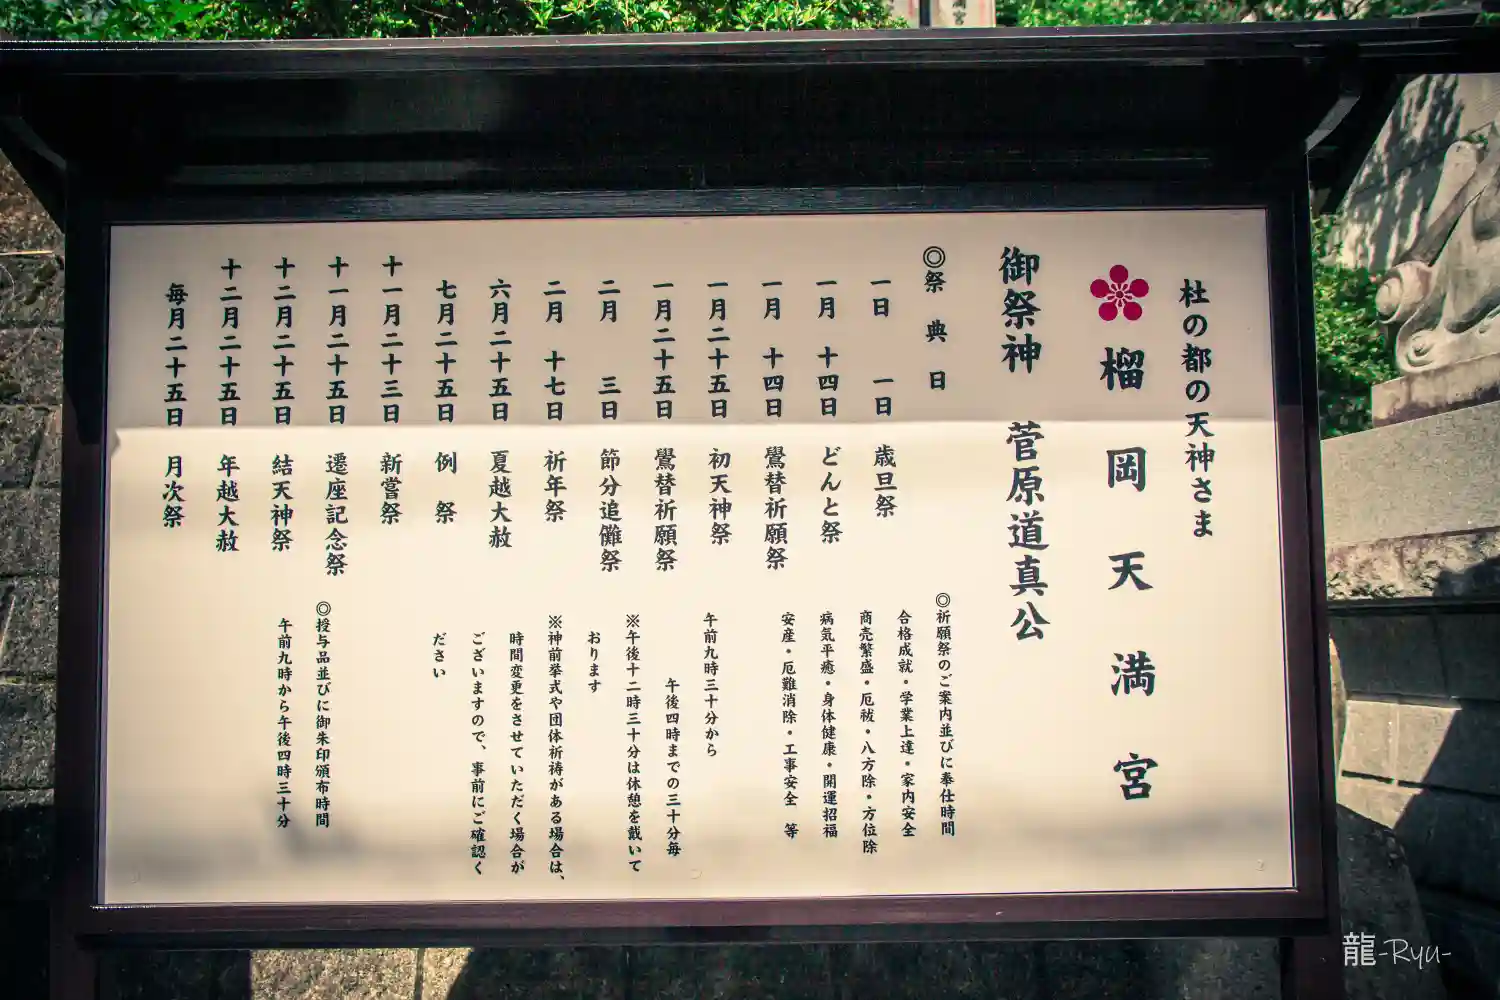 杜の都の天神さま
榴岡天満宮
御祭神 菅原道真公
◎祭典日
一日 一日 歳旦祭
一月 十四日 どんと祭
一月 十四日 鷽替祈願祭
一月二十五日 初天神祭
一月二十五日 鷽替祈願祭
二月 三日 節分追儺祭
二月 十七日 祈年祭
六月二十五日 夏越大赦
七月二十五日 例祭
十一月二十三日 新嘗祭
十一月二十五日 遷座記念祭
十二月二十五日 結天神祭
十二月二十五日 年越大赦
毎月二十五日 月次祭
◎祈願祭のご案内並びに奉仕時間
合格成就・学業上達・家内安全
商売繁盛・厄祓・八方除・方位除
病気平癒・身体健康・開運招福
安産・厄難消除・工事安全 等
午前九時三十分から
午後四時までの三十分毎
※午後十二時三十分は休憩を戴いて
おります
※神前挙式や団体祈祷がある場合は、
時間変更をさせていただく場合が
ございますので、事前にご確認く
ださい
◎授与品並びに御朱印頒布時間
午前九時から午後四時三十分
龍-Ryu-